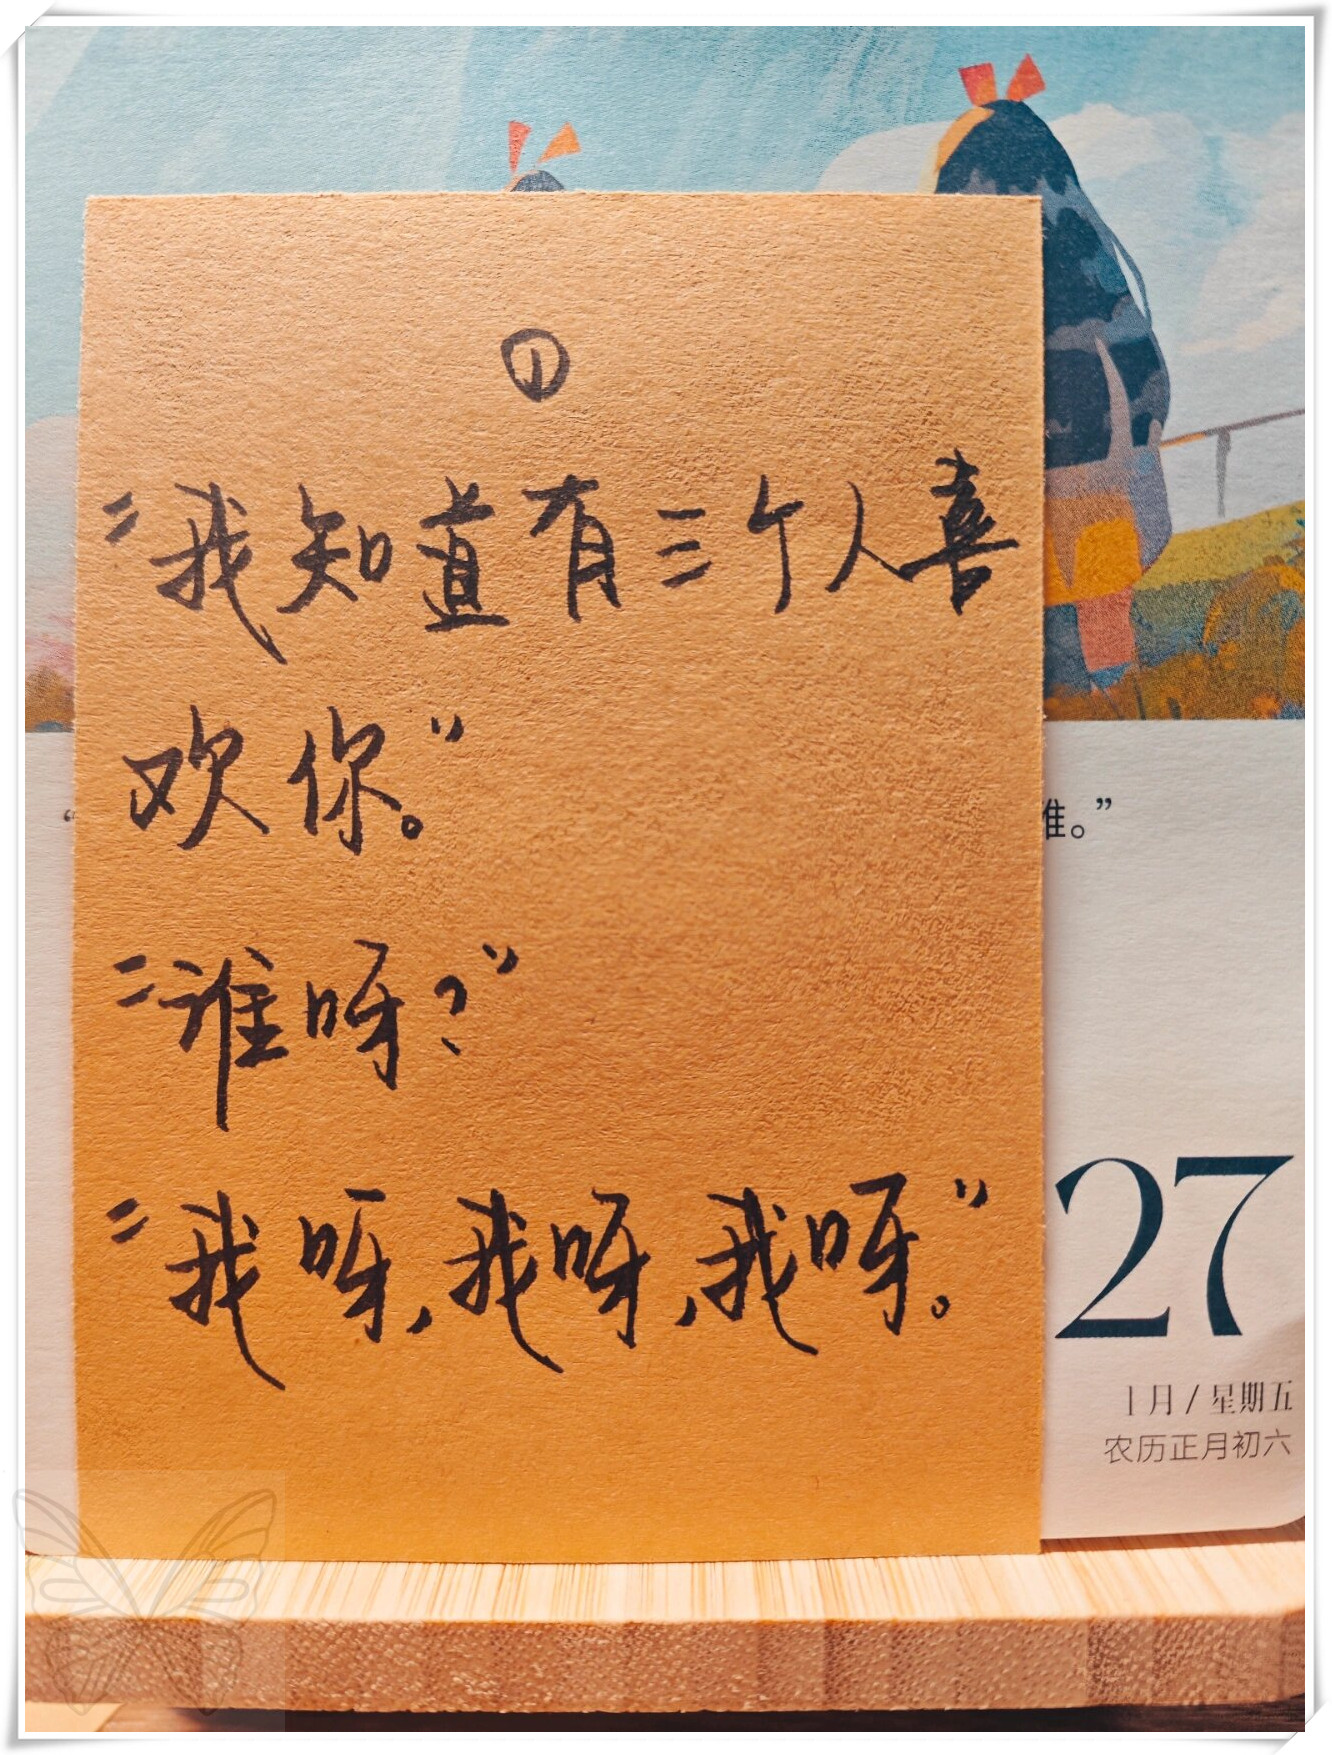 ①
“我知道有三个人喜
欢你。”
“谁呀？”
“我呀，我呀，我呀。”
“
谁。”
27
1月/星期五
农历正月初六